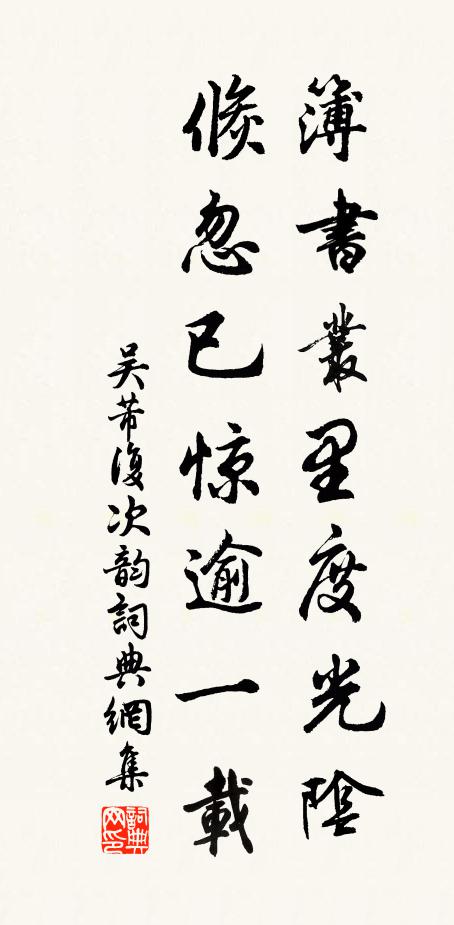 簿書叢里度光陰
倏忽已惊逾一載
吴芾復次韵詞典網集
詞典网印